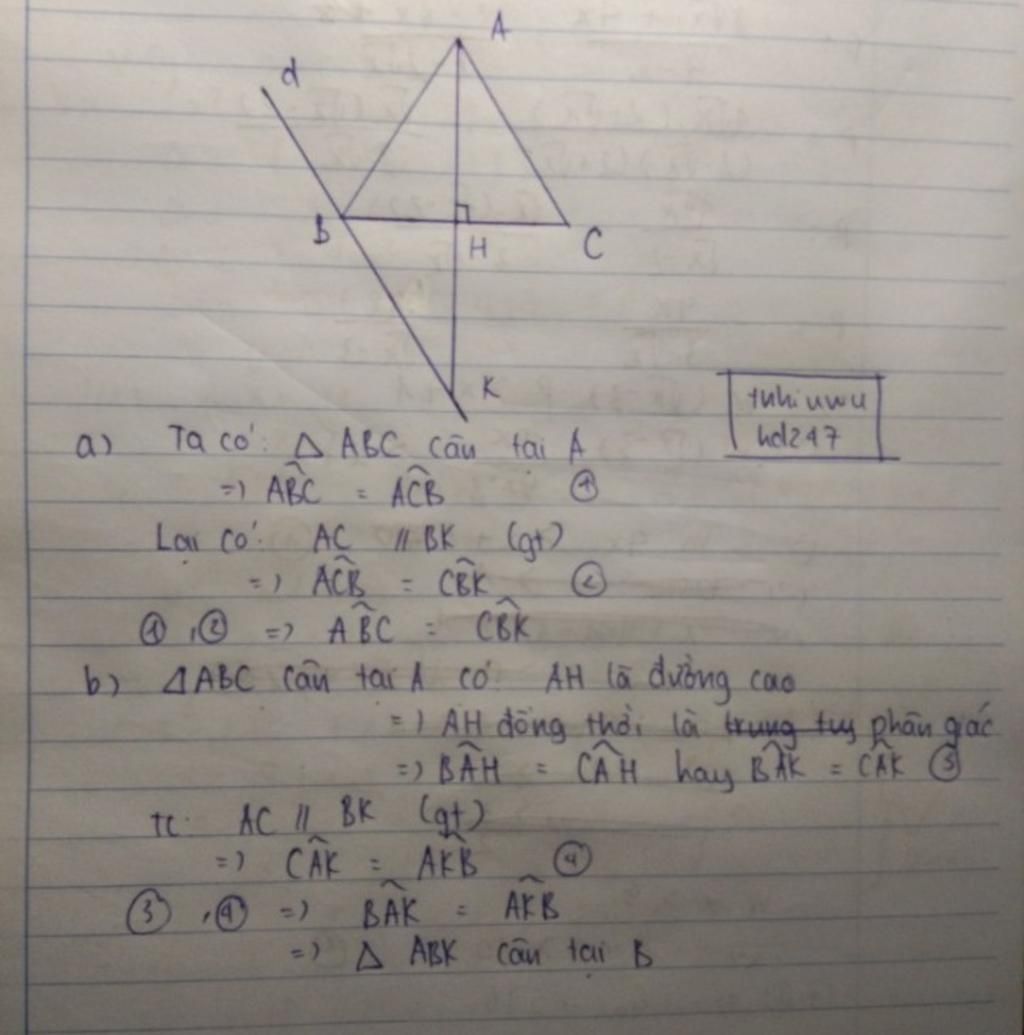 A
d
B
H
C
K
tnhi uwu
hd247
a) Ta có: Δ ABC cân tại A
=> ABĈ = AĈB ①
Lại có: AC // BK (gt)
=> AĈB = CB̂K ②
①, ② => AB̂C = CB̂K
b) Δ ABC cân tại A có AH là đường cao
=> AH đồng thời là trung tuy phân giác
=> BÂH = CÂH hay BÂK = CÂK ③
TC: AC // BK (gt)
=> CÂK = AK̂B ④
③, ④ => BÂK = AK̂B
=> Δ ABK cân tại B